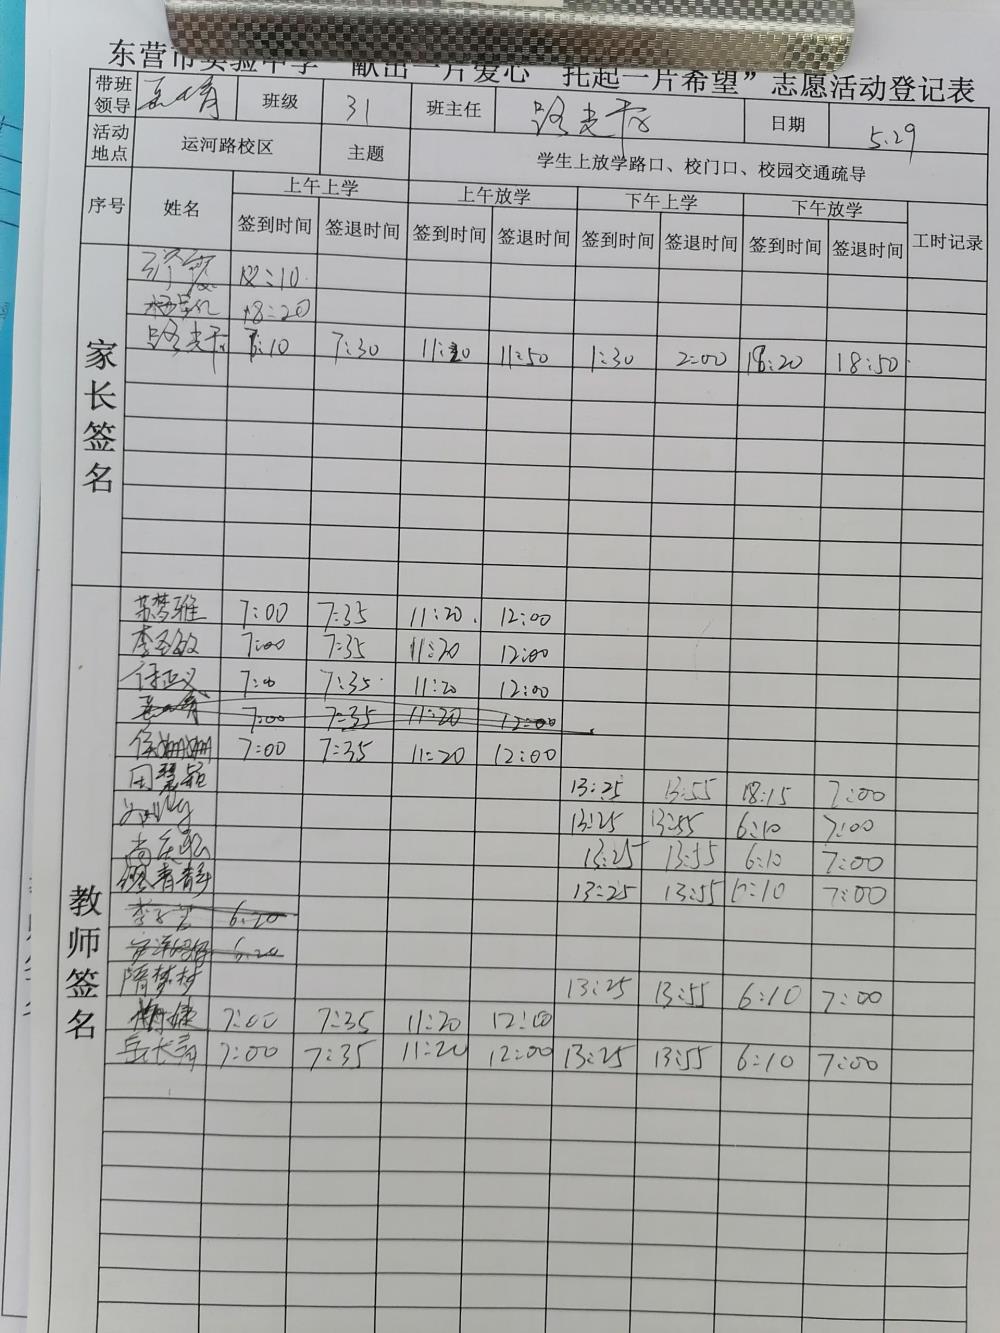 东营市实验中学“献出一片爱心 托起一片希望”志愿活动登记表
带班领导 班级 31 班主任 路 日期 5.29
活动地点 运河路校区 主题 学生上放学路口、校门口、校园交通疏导
序号 姓名 上午上学 上午放学 下午上学 下午放学 工时记录
签到时间 签退时间 签到时间 签退时间 签到时间 签退时间 签到时间 签退时间
家长签名
:10
18:20
路 7:10 7:30 11:20 11:50 1:30 2:00 18:20 18:50
教师签名
苏梦雅 7:00 7:35 11:20 12:00
李圣敏 7:00 7:35 11:20 12:00
任正义 7:00 7:35 11:20 12:00
7:00 7:35 11:20 12:00
侯姗姗 7:00 7:35 11:20 12:00
田慧颖 13:25 13:55 18:15 7:00
13:25 13:55 6:10 7:00
尚 13:25 13:55 6:10 7:00
青静 13:25 13:55 6:10 7:00
李 6:20
6:20
隋梦 13:25 13:55 6:10 7:00
7:00 7:35 11:20 12:00
岳长 7:00 7:35 11:20 12:00 13:25 13:55 6:10 7:00